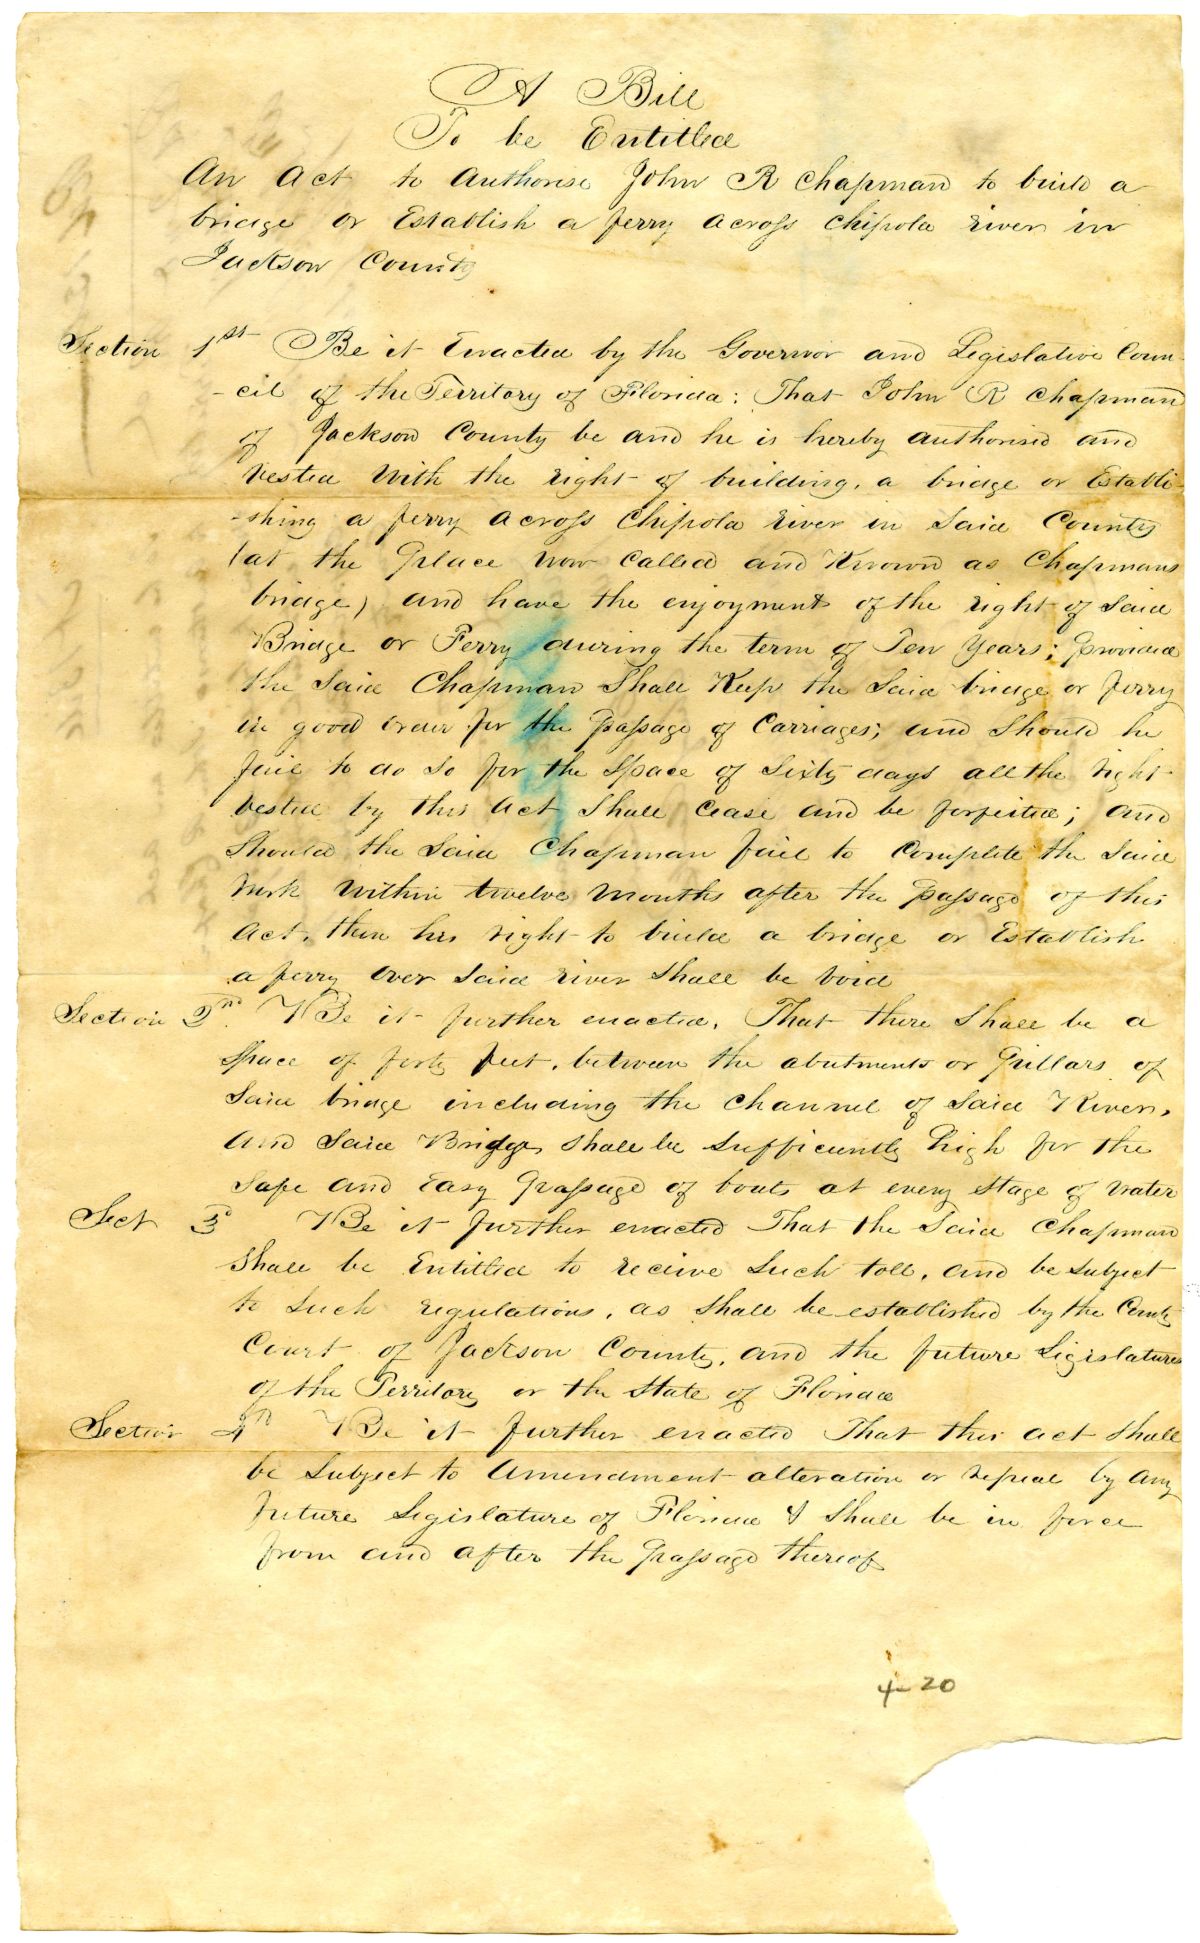 A Bill
To be Entitled
An Act to Authorise John R Chapman to build a
bridge or Establish a ferry across Chipola river in
Jackson County
Section 1st Be it Enacted by the Governor and Legislative Coun-
-cil of the Territory of Florida: That John R Chapman
of Jackson County be and he is hereby authorised and
vested with the right of building, a bridge or Establi-
-shing a ferry across Chipola river in Said County
(at the place now called and Known as Chapmans
bridge) and have the enjoyment of the right of Said
Bridge or Ferry during the term of Ten Years; provided
the Said Chapman Shall Keep the Said bridge or ferry
in good order for the passage of Carriages; and Should he
fail to do So for the Space of Sixty days all the right
vested by this Act Shall Cease and be forfeited; and
Should the Said Chapman fail to Complete the Said
work within twelve months after the passage of this
Act, then his right to build a bridge or Establish
a ferry over Said river Shall be void
Section 2nd. Be it further enacted, That there Shall be a
Space of forty feet, between the abutments or pillars of
Said bridge including the Channel of Said River,
And Said Bridge Shall be Sufficiently high for the
Safe and Easy passage of boats at every Stage of water
Sect 3d Be it further enacted That the Said Chapman
Shall be Entitled to recieve Such toll, and be Subject
to Such regulations, as Shall be established by the County
Court of Jackson County, and the future Legislatures
of the Territory or the State of Florida
Section 4th Be it further enacted That this act Shall
be Subject to Amendment alteration or repeal by any
future Legislature of Florida & Shall be in force
from and after the passage thereof
4-20